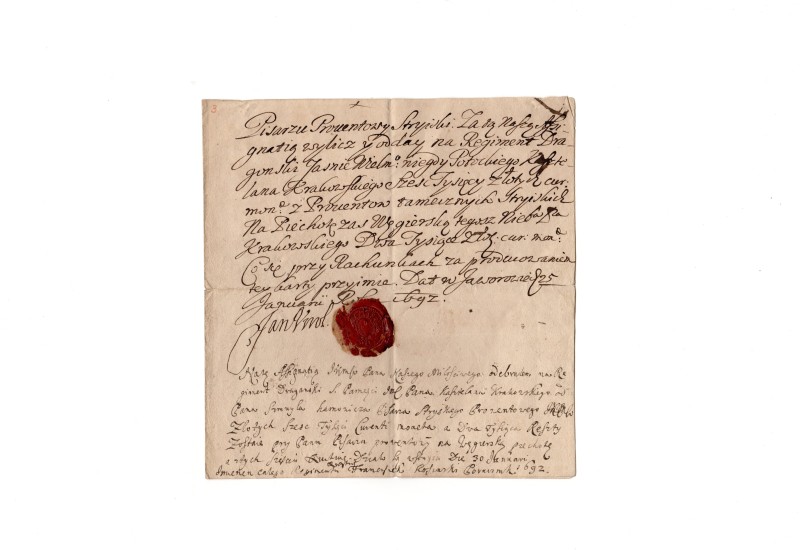 3
Pisarzu Prowentowy Stryiski. Za tą Naszą Assi-
gnatią wylicz y odday na Regiment Dra-
gonski Jasnie Wielmo: niegdy Potockiego Kaszte-
lana Krakowskiego Szesc Tysięcy Złotych cur:
mon: z Prowentow tamecznych Stryiskich
Na Piechotę zas Węgierską tegosz Nieboszka
Krakowskiego Dwa Tysiąca Zło: cur: mon:
Co się przy Rachunkach za producowaniem
tey karty przyimie. Dat w Jaworowie 25
Januarij 1692.
Jan Krol
Assignatią Pana Naszego Miłosciwego odebrałem na Re-
giment Dragonski S. Pamięci Pana Kasztelana Krakowskiego od
Pana Pisarza Stryskiego Prowentowego
Złotych Szesc Tysięcy Curenti moneta a Dwa Tysiąca Reszty
Zostaie przy Panu Pisarzu prowentowym na Węgierską piechotę
Die 30 Jannuarii
całego Regimentu Franciszek 1692.